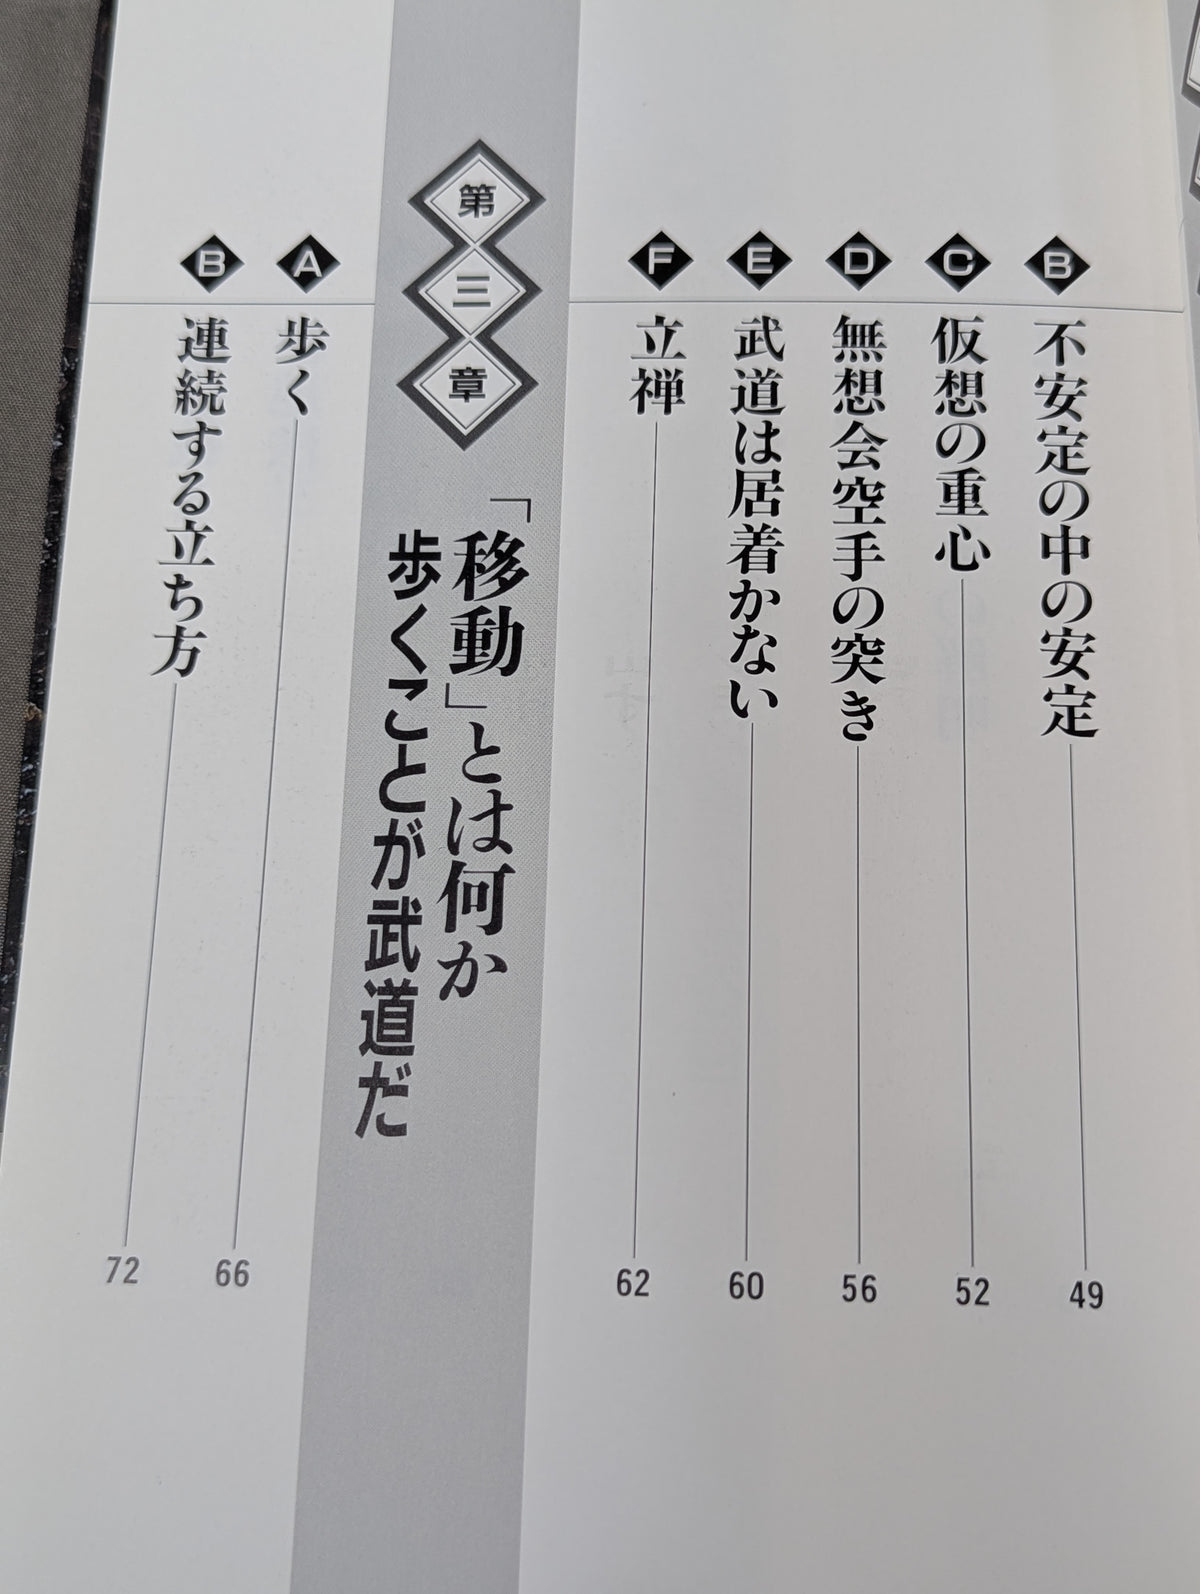 B 不安定の中の安定 49
C 仮想の重心 52
D 無想会空手の突き 56
E 武道は居着かない 60
F 立禅 62
第三章
「移動」とは何か
歩くことが武道だ
A 歩く 66
B 連続する立ち方 72